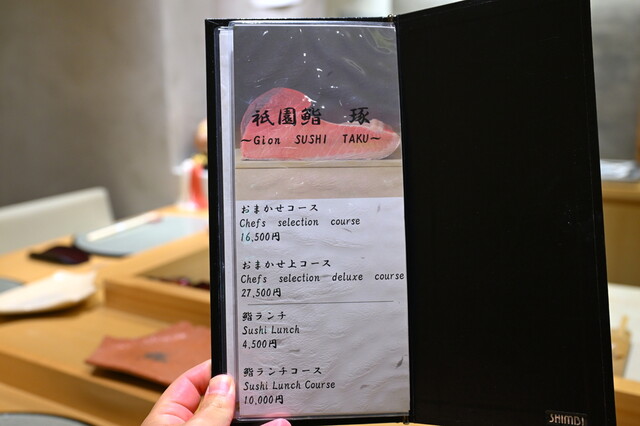 祇園鮨 琢
～Gion SUSHI TAKU～
おまかせコース
Chefs selection course
16,500円
おまかせ上コース
Chefs selection deluxe course
27,500円
鮨ランチ
Sushi Lunch
4,500円
鮨ランチコース
Sushi Lunch Course
10,000円
SHIMBI